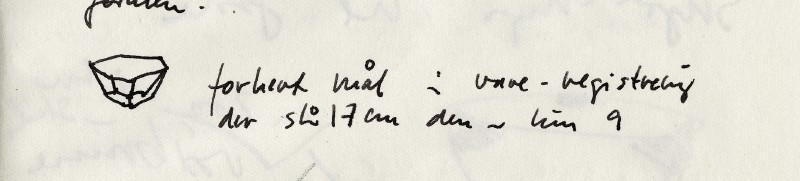 forkert mål i vare-registrering
der står 17 cm den er kun 9